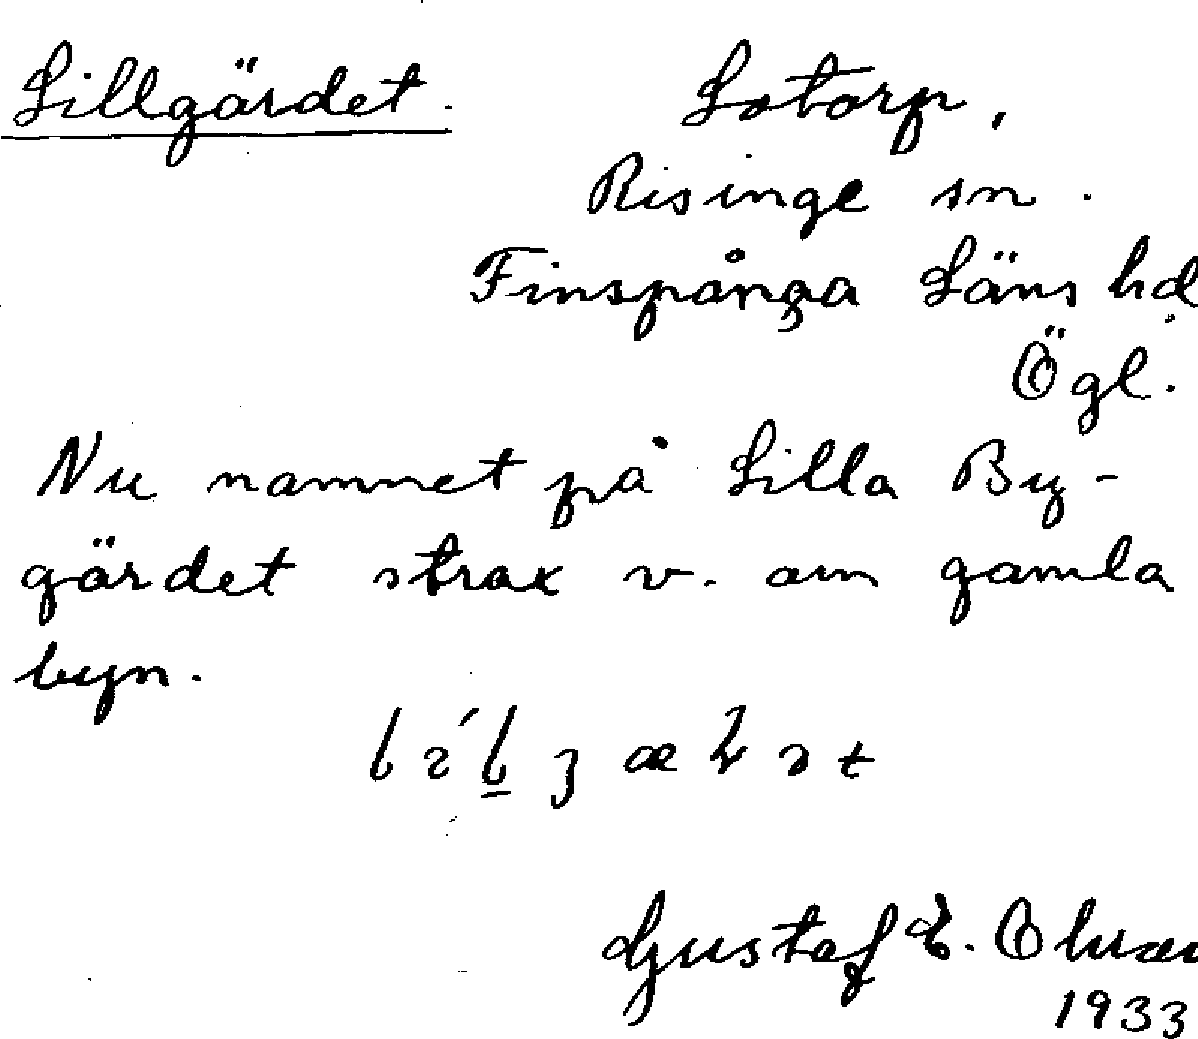 Lillgärdet. Lotorp,
Risinge sn.
Finspånga Läns hd
Ögl.
Nu namnet på Lilla By-
gärdet strax v. om gamla
byn.
Gustaf E.
1933